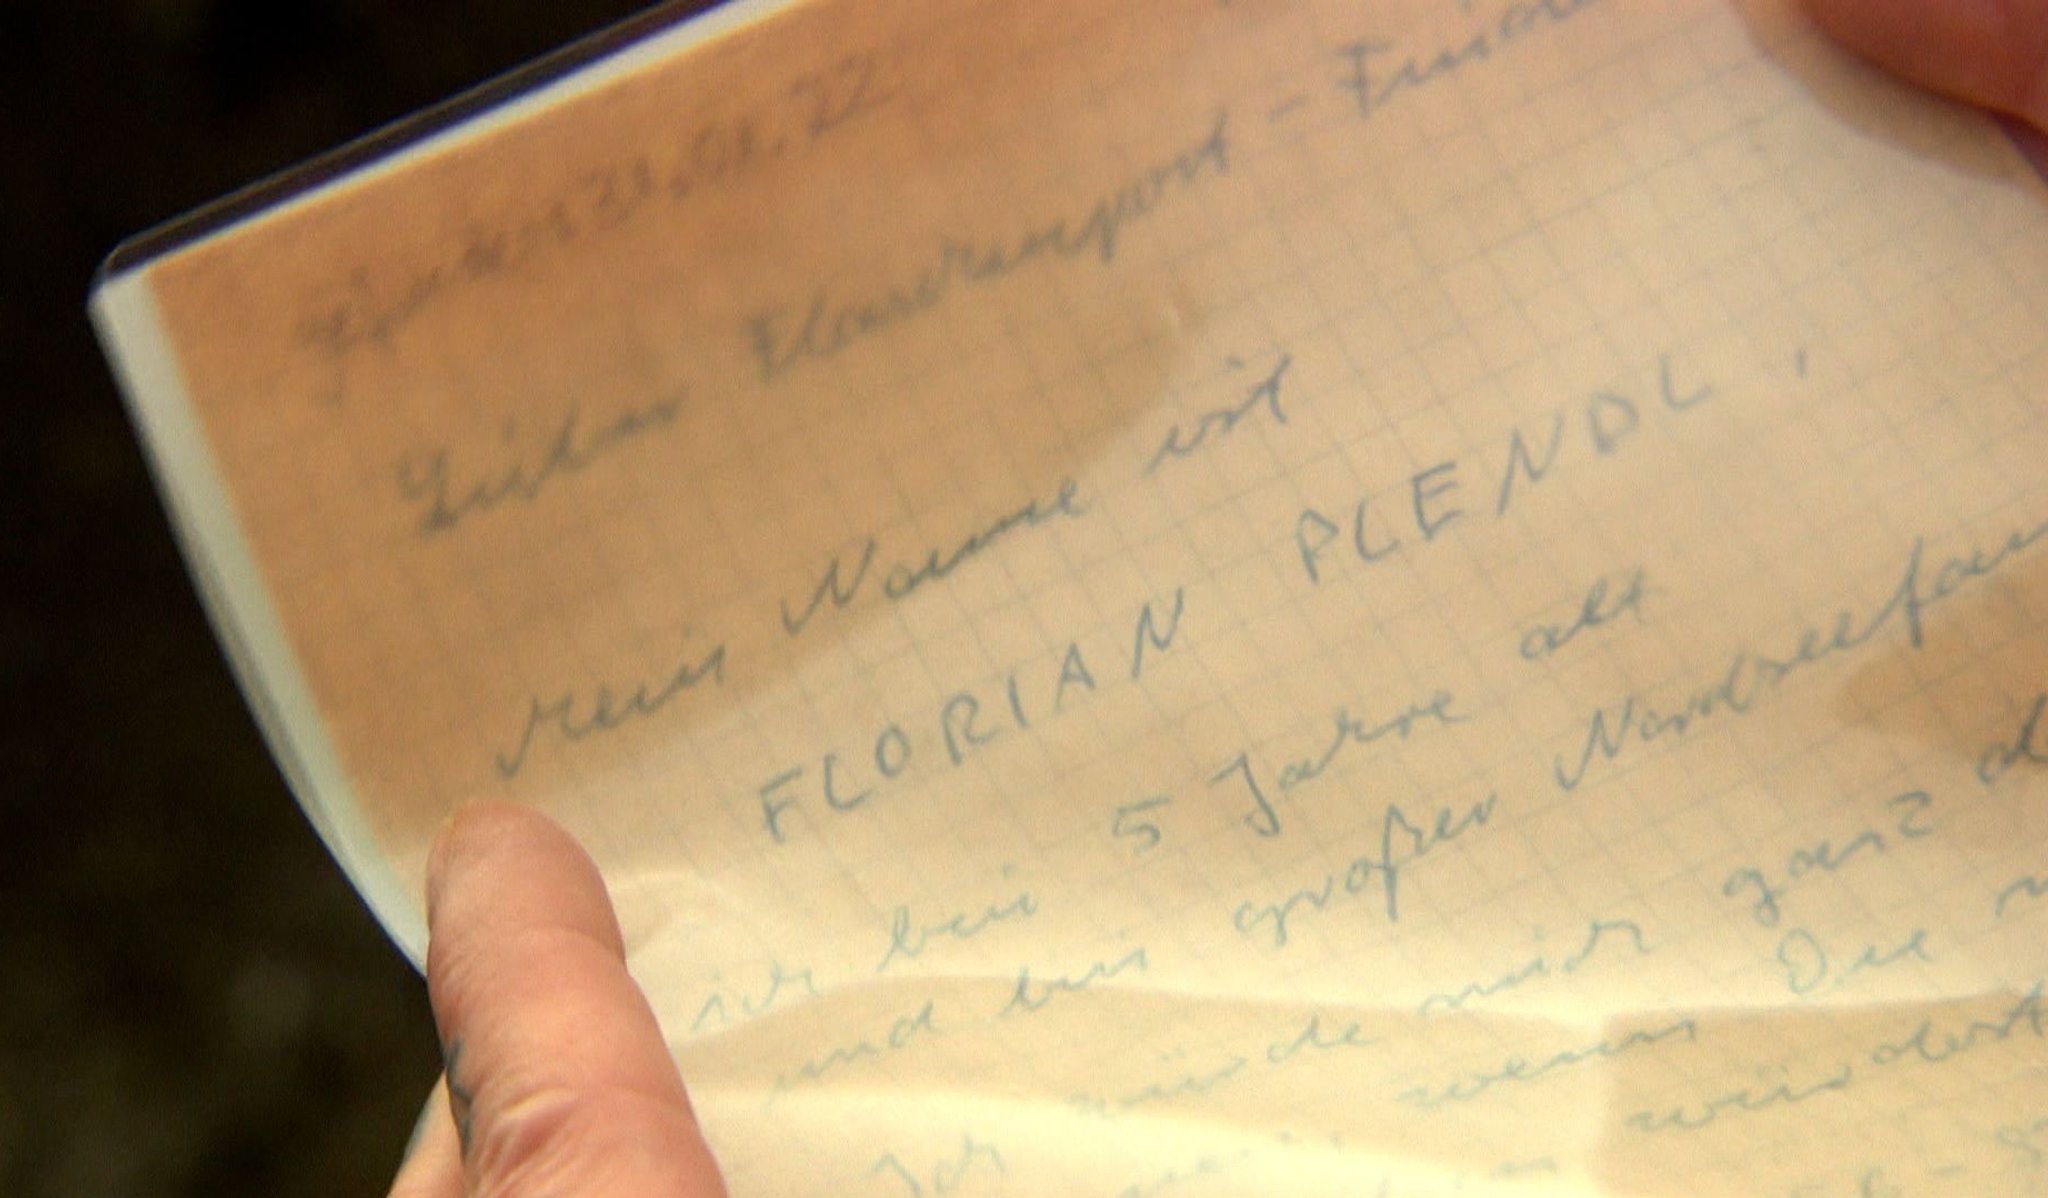 31.01.22
Lieber Flaschenpost-Finder
Mein Name ist
FLORIAN PLENDL,
ich bin 5 Jahre alt
und bin großer Nordseefan
Ich würde mich ganz
wenn Du
würdest